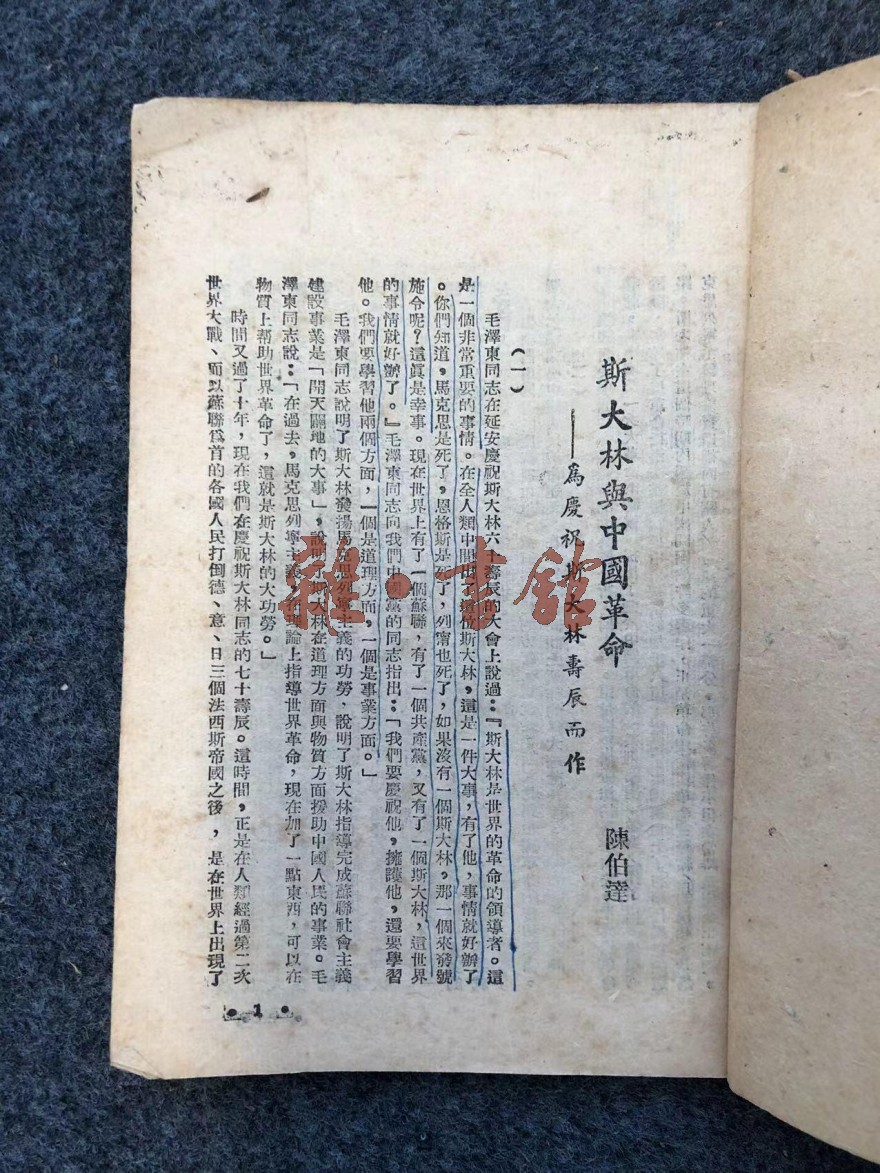 斯大林與中國革命
——爲慶祝斯大林壽辰而作
陳伯達
(一)
毛澤東同志在延安慶祝斯大林六十壽辰的大會上說過：『斯大林是世界的革命的領導者。這
是一個非常重要的事情。在全人類中間出了這位斯大林，這是一件大事，有了他，事情就好辦了
。你們知道，馬克思是死了，恩格斯是死了，列甯也死了，如果沒有一個斯大林，那一個來發號
施令呢？這眞是幸事。現在世界上有了一個蘇聯，有了一個共產黨，又有了一個斯大林，這世界
的事情就好辦了。』毛澤東同志向我們中國黨的同志指出：「我們要慶祝他，擁護他，還要學習
他。我們要學習他兩個方面，一個是道理方面，一個是事業方面。」
毛澤東同志說明了斯大林發揚馬克思列寧主義的功勞，說明了斯大林指導完成蘇聯社會主義
建設事業是「開天闢地的大事」，說明了斯大林在道理方面與物質方面援助中國人民的事業。毛
澤東同志說：「在過去，馬克思列寧主義在理論上指導世界革命，現在加了一點東西，可以在
物質上帮助世界革命了，這就是斯大林的大功勞。」
時間又過了十年，現在我們在慶祝斯大林同志的七十壽辰。這時間，正是在人類經過第二次
世界大戰、而以蘇聯爲首的各國人民打倒德、意、日三個法西斯帝國之後，是在世界上出現了
•1•
雜·書館